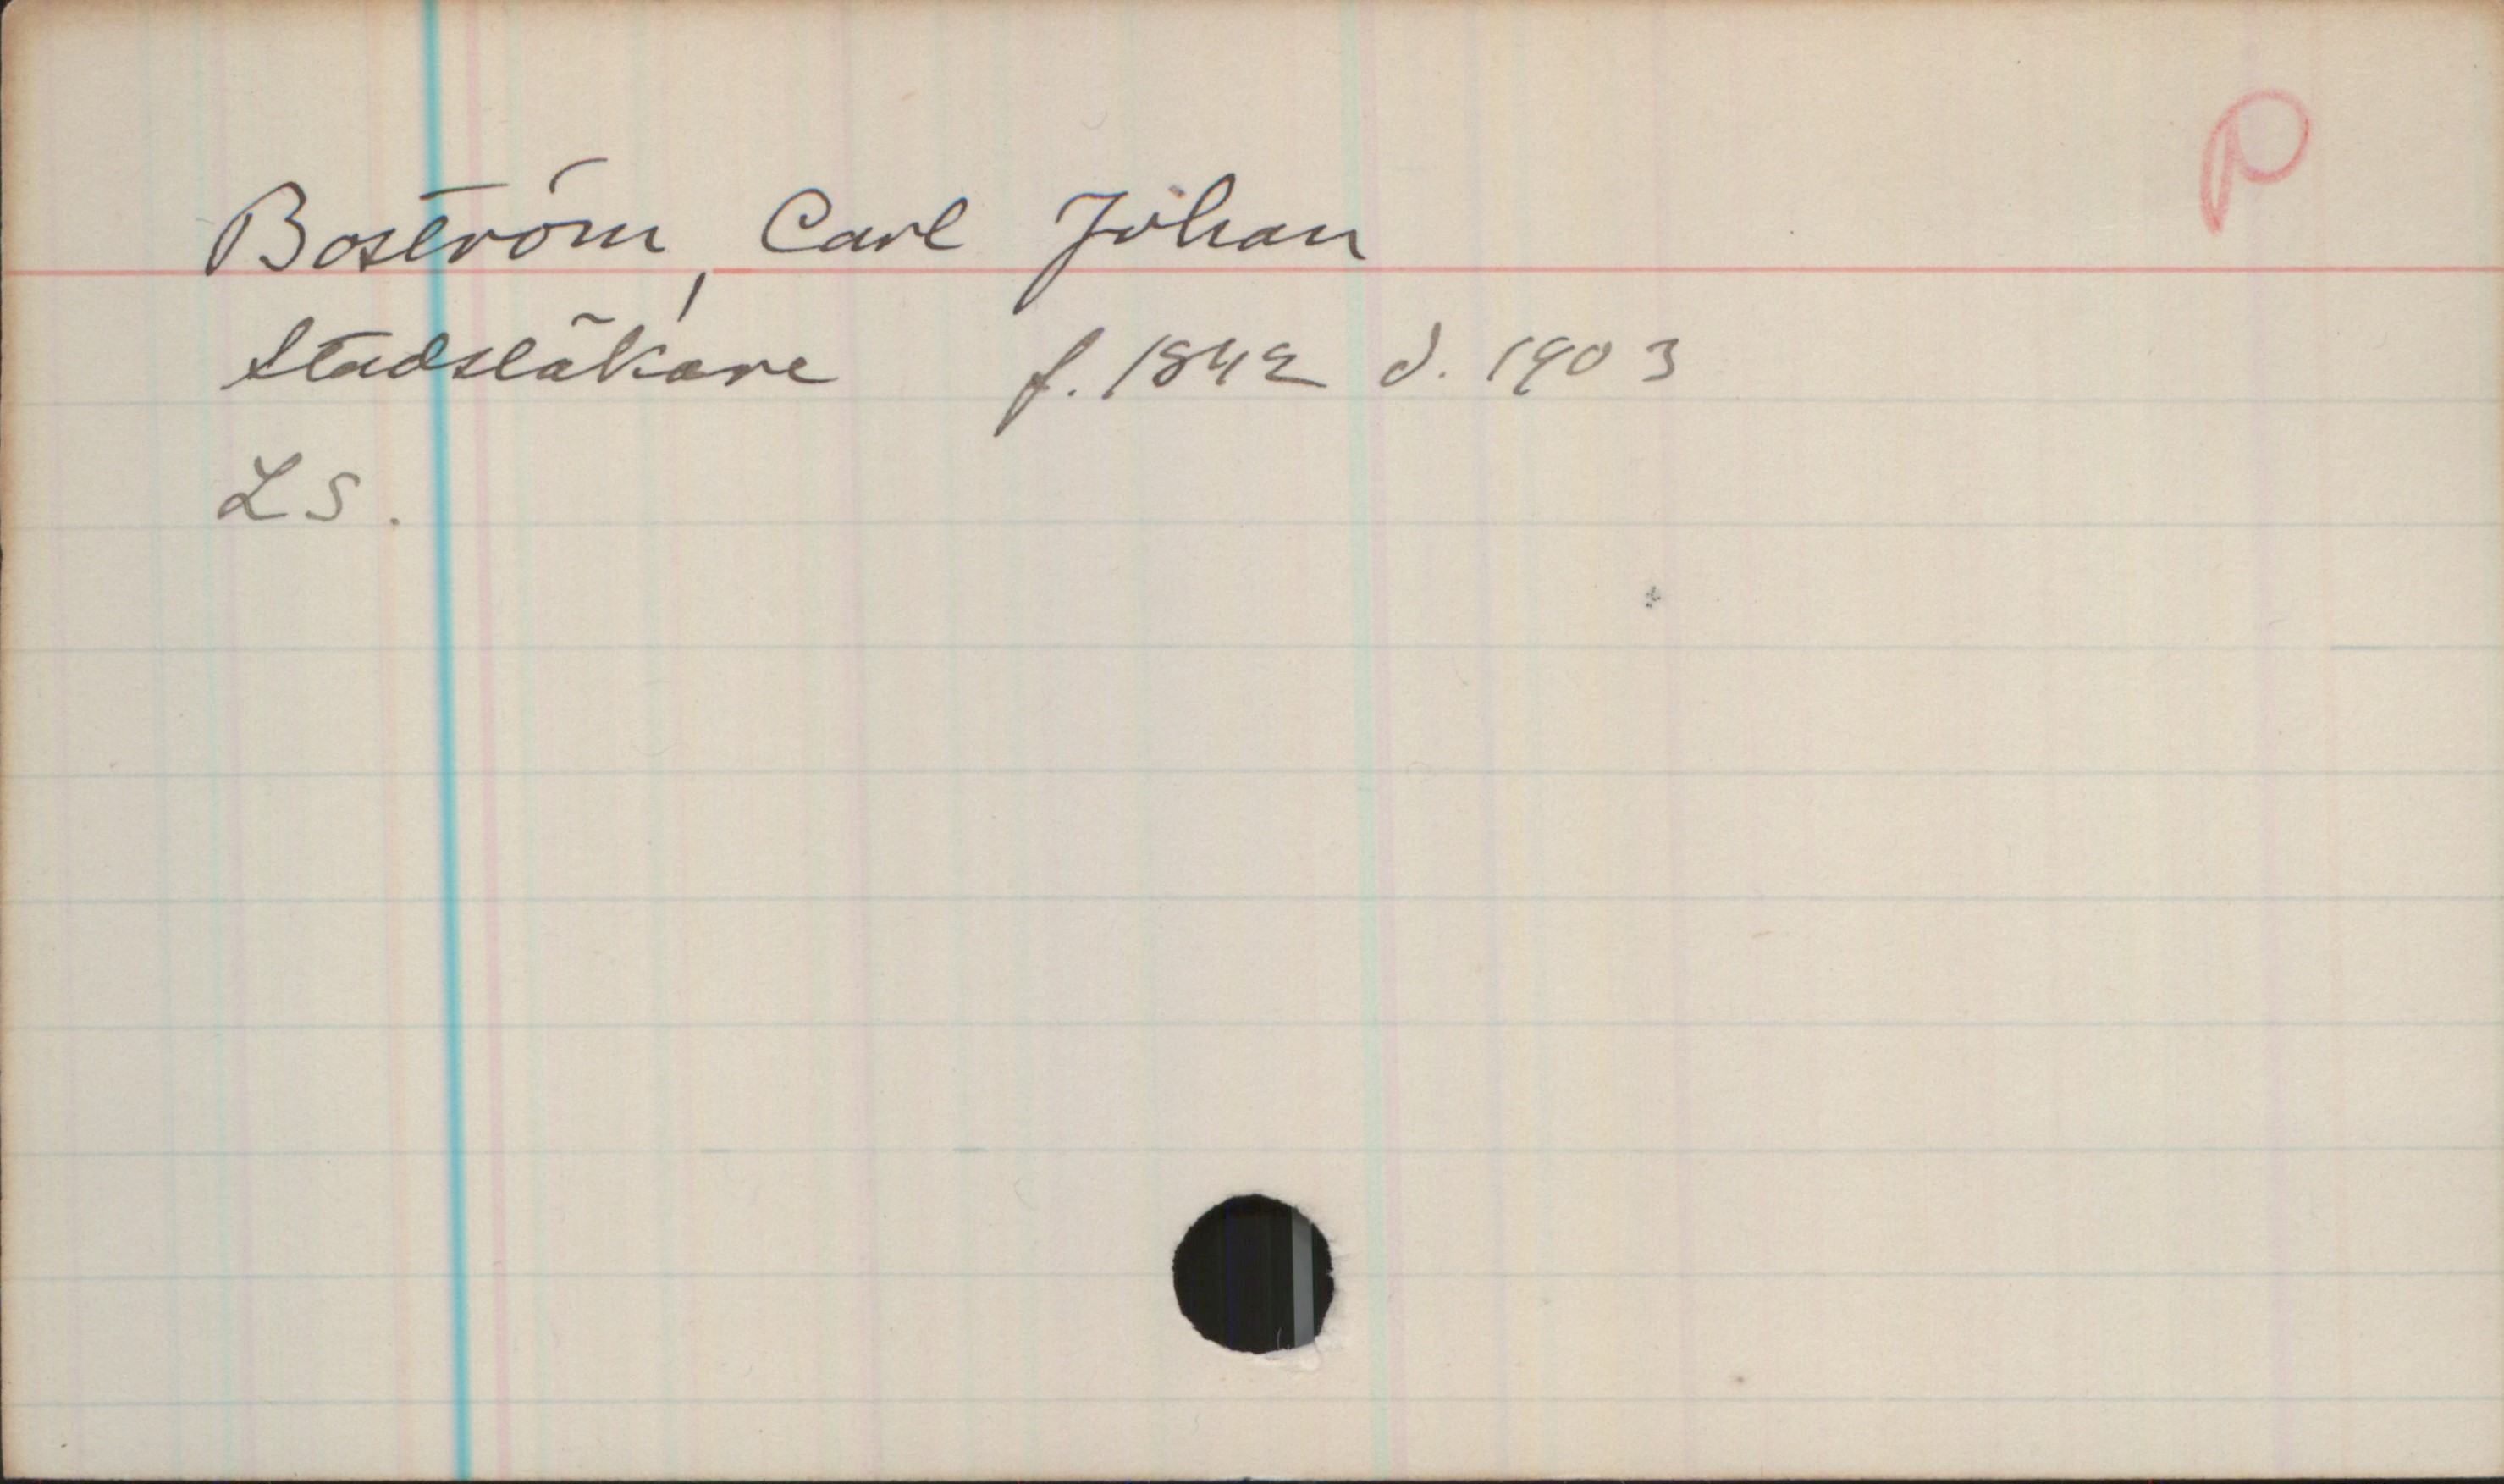 P
Boström, Carl Johan
Stadsläkare f. 1842 d. 1903
LS.